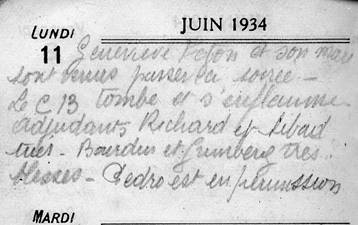 LUNDI
JUIN 1934
11
Geneviève et son mari
sont venus passer la soirée -
Le C 13 tombe et s'enflamme
adjudants Richard et
tués - Bourdin et Grimberg très
blessés - Pedro est en permission
MARDI